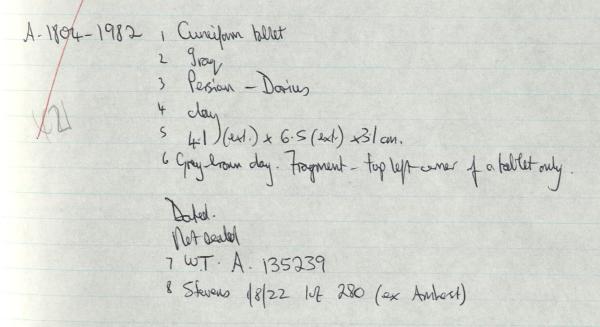 A. 1804-1982 1 Cuneiform tablet
2 Iraq
3 Persian - Darius
4 clay
421
5 4.1 (ext.) x 6.5 (ext.) x 31 cm.
6 Grey-brown clay. Fragment - top left corner of a tablet only.
Dated.
Not sealed
7 W.T. A. 135239
8 Stevens /8/22 lot 280 (ex Amherst)